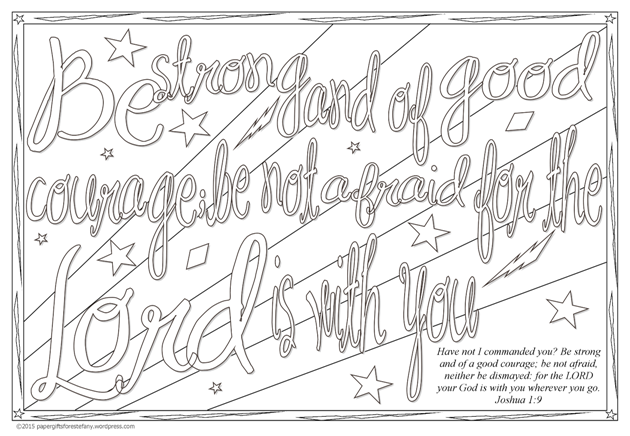 Be strong and of good
courage; be not afraid for the
Lord is with you
Have not I commanded you? Be strong
and of a good courage; be not afraid,
neither be dismayed: for the LORD
your God is with you wherever you go.
Joshua 1:9
©2015 papergiftsforestefany.wordpress.com